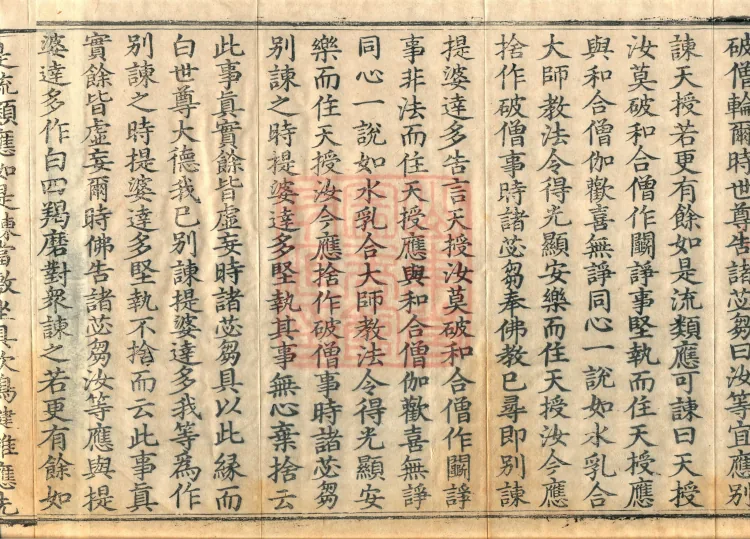 破僧輪爾時世尊告諸苾芻曰汝等宜應別
諫天授若更有餘如是流類應可諫曰天授
汝莫破和合僧作鬭諍事堅執而住天授應
與和合僧伽歡喜無諍同心一說如水乳合
大師教法令得光顯安樂而住天授汝今應
捨作破僧事時諸苾芻奉佛教已尋即別諫
提婆達多告言天授汝莫破和合僧作鬭諍
事非法而住天授應與和合僧伽歡喜無諍
同心一說如水乳合大師教法令得光顯安
樂而住天授汝今應捨作破僧事時諸苾芻
別諫之時提婆達多堅執其事無心棄捨云
此事真實餘皆虛妄時諸苾芻具以此緣而
白世尊大德我已別諫提婆達多我等為作
別諫之時提婆達多堅執不捨而云此事真
實餘皆虛妄爾時佛告諸苾芻汝等應與提
婆達多作白四羯磨對眾諫之若更有餘如
是流類應如是諫當敷坐具次鳴犍椎應先